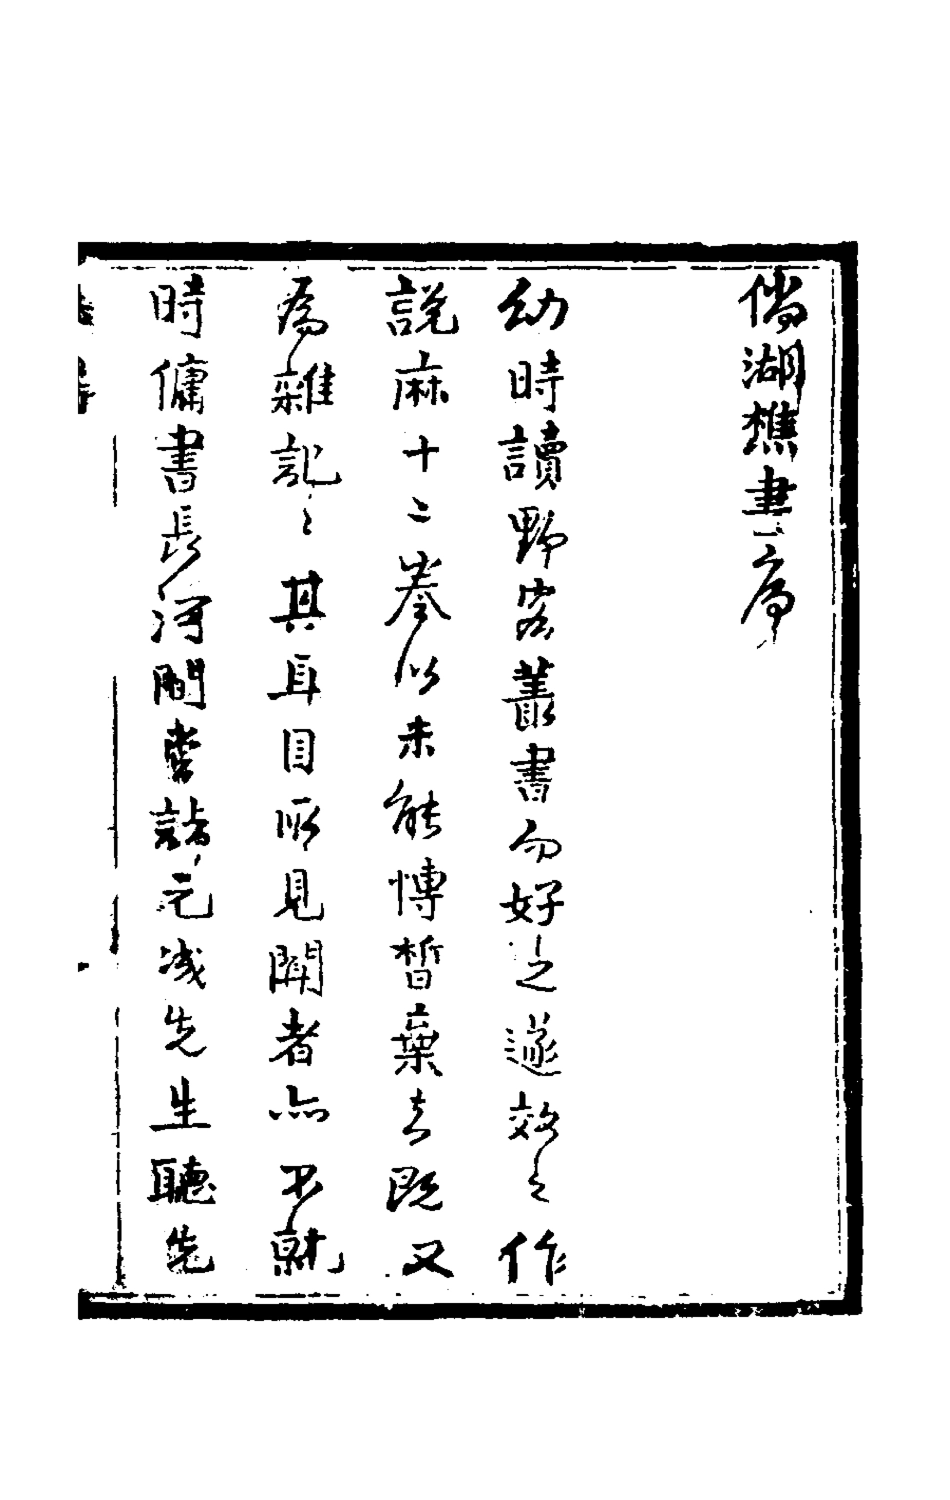 倘湖樵書序
幼時讀野客叢書而好之遂效之作
說麻十二卷以未能博晳棄去既又
為雜記記其耳目所見聞者亦不就
時傭書長河間嘗詣元成先生聽先